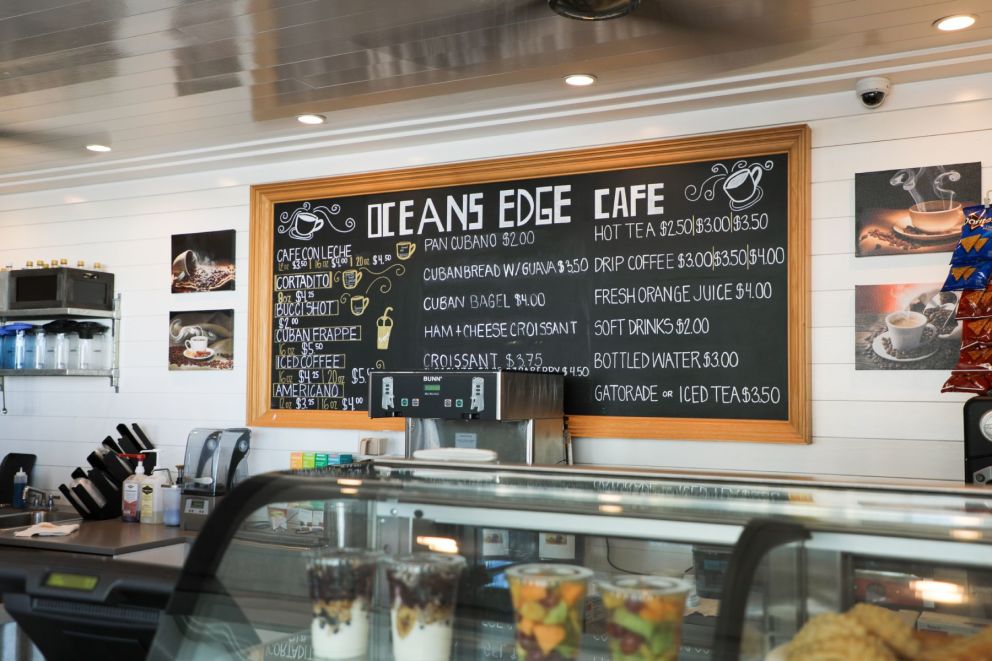 OCEANS EDGE CAFE
CAFE CON LECHE
12 oz $3.50 | 16 oz $4.00 | 20 oz $4.50
CORTADITO
8 oz $4.25
BUCCI SHOT
$2.00
CUBAN FRAPPE
16 oz $5.50
ICED COFFEE
16 oz $4.25 | 20 oz $5.
AMERICANO
12 oz $3.25 | 16 oz $4.00
PAN CUBANO $2.00
CUBAN BREAD W/ GUAVA $3.50
CUBAN BAGEL $4.00
HAM + CHEESE CROISSANT
CROISSANT $3.75
$4.50
HOT TEA $2.50|$3.00|$3.50
DRIP COFFEE $3.00|$3.50|$4.00
FRESH ORANGE JUICE $4.00
SOFT DRINKS $2.00
BOTTLED WATER $3.00
GATORADE OR ICED TEA $3.50
BUNN
Doritos